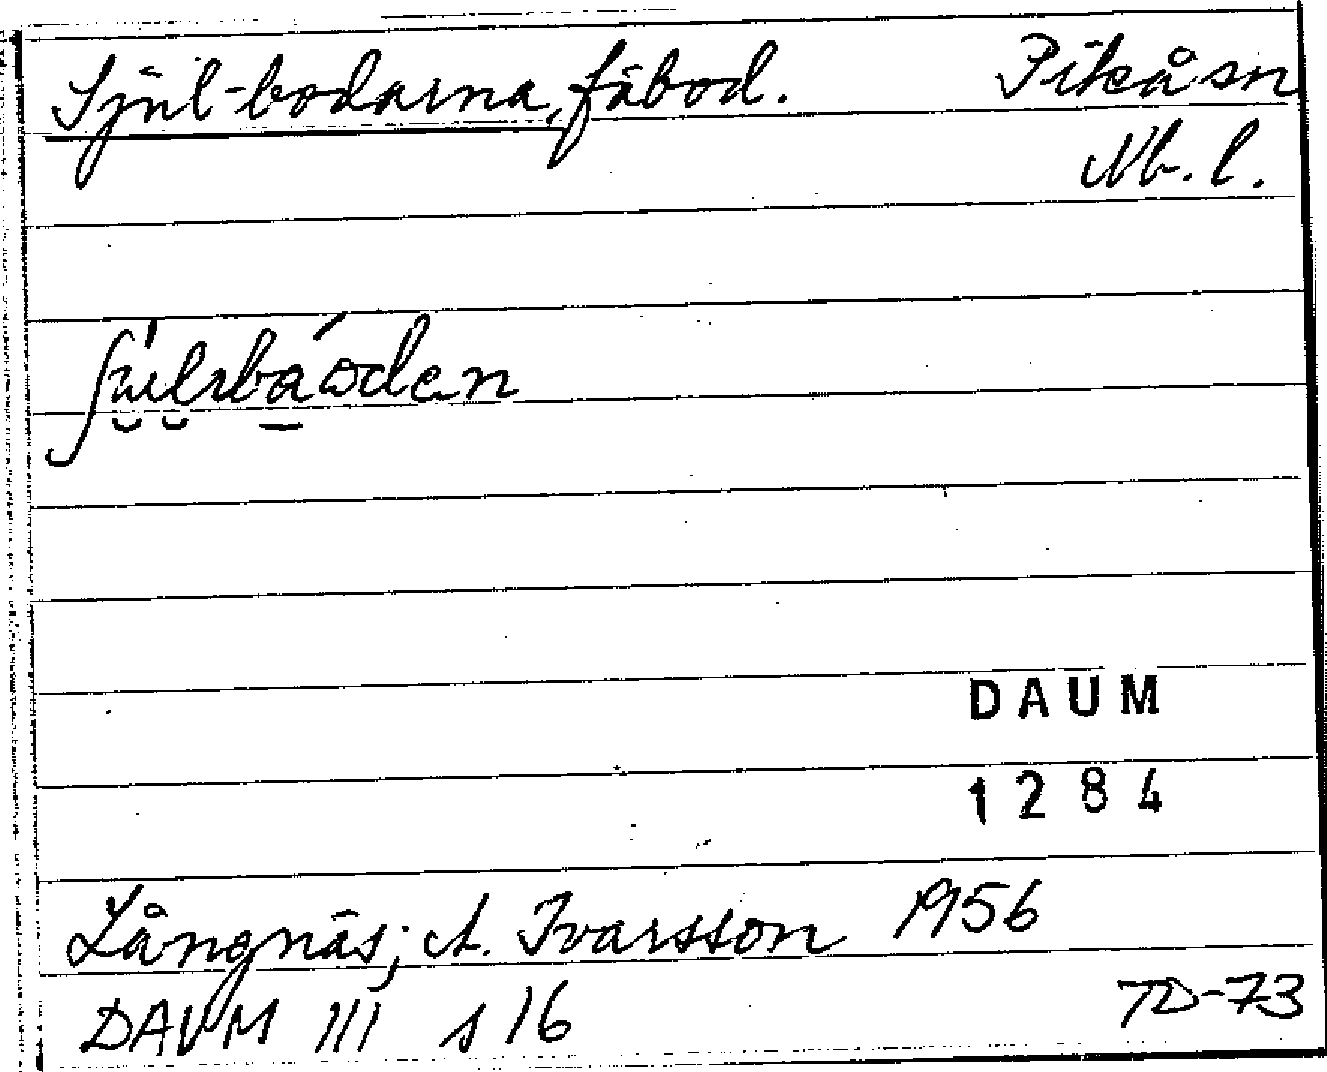 Sjul-bodarna, fäbod. Piteå sn
Nb. l.
DAUM
1284
Långnäs; A. Ivarsson 1956
DAUM III s 16 TD-73